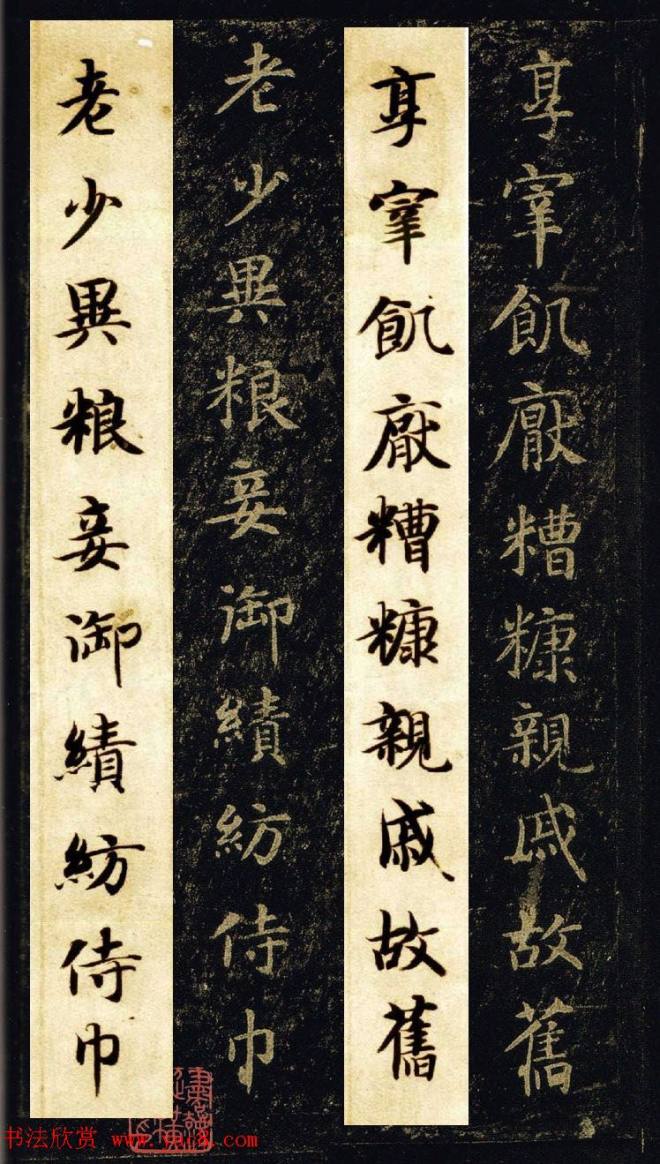 享宰飢厭糟糠親戚故舊
享宰飢厭糟糠親戚故舊
老少異粮妾御績紡侍巾
老少異粮妾御績紡侍巾
书法欣赏 www.